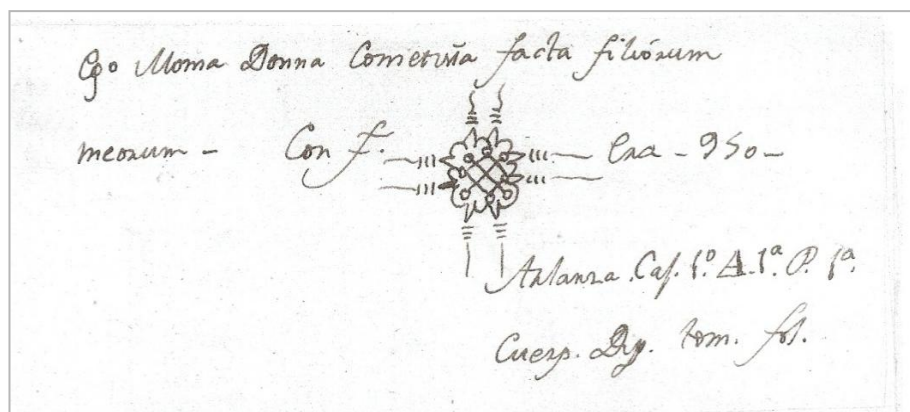 Ego Moma Donna Cometiña facta filiórum
meorum - Con f. Era - 950 -
Arlanza. Caj. 1º A. 1ª P. 1ª
Cuerp. Dip. tom. fol.